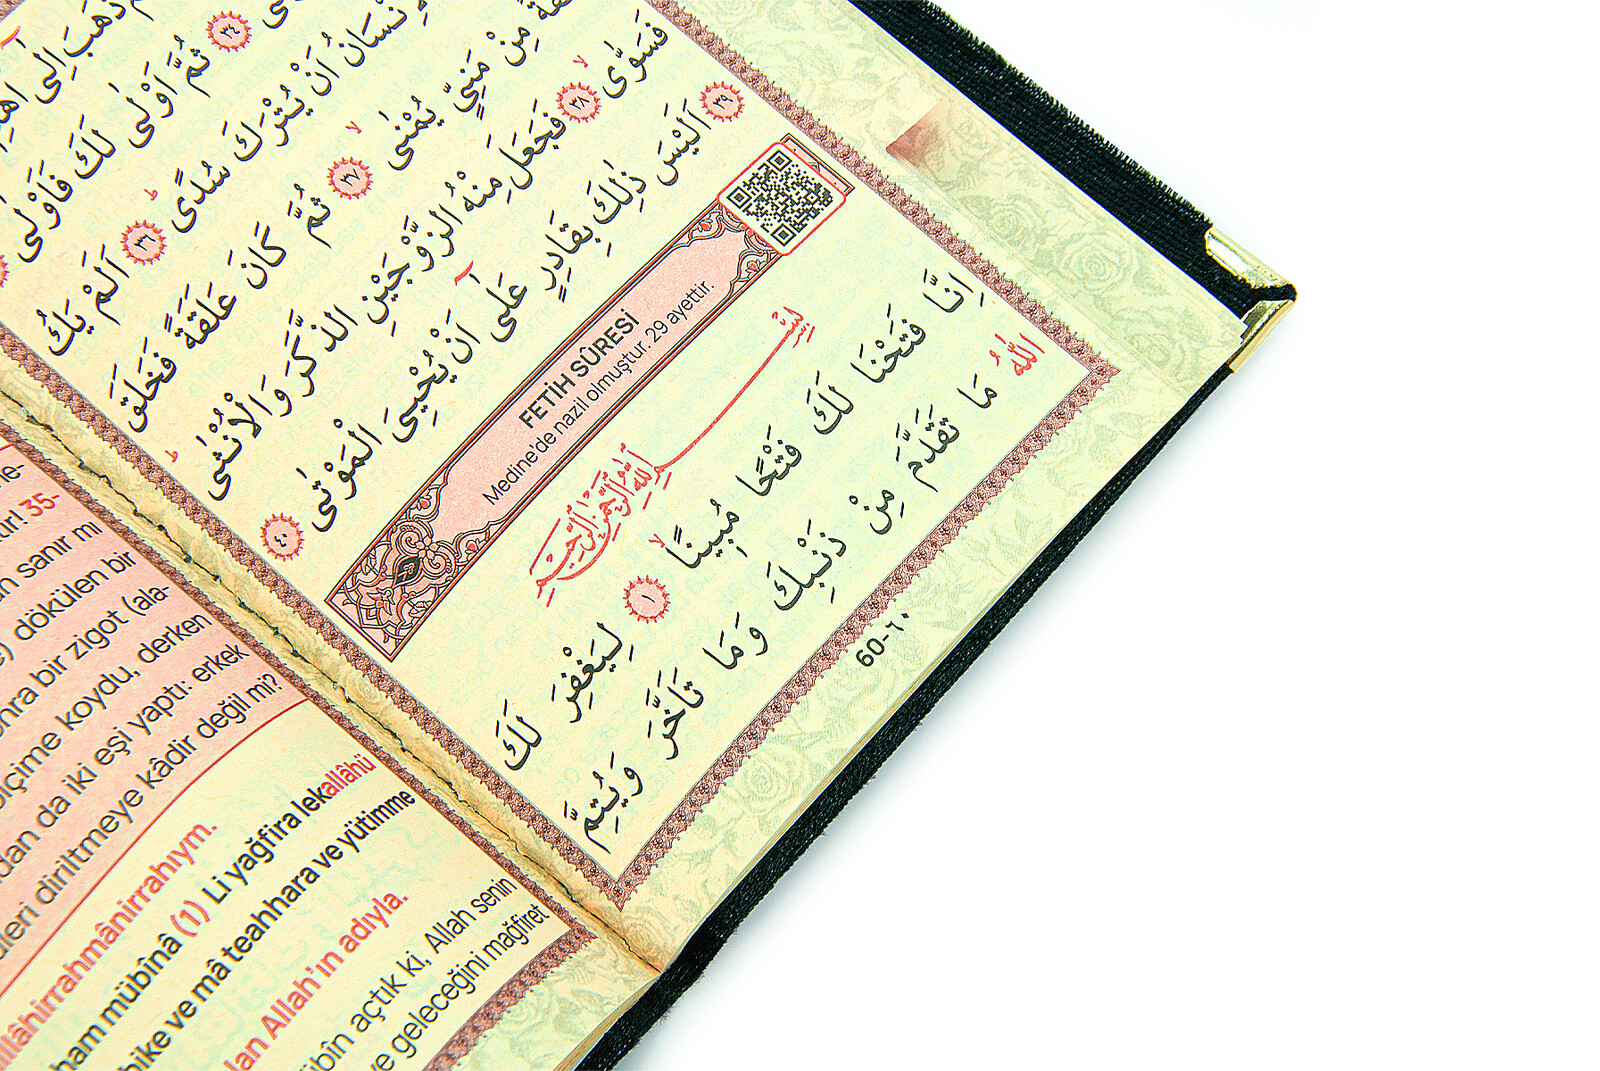 ذَهَبَ اِلٰٓى اَهْلِه
ثُمَّ اَوْلٰى لَكَ فَاَوْلٰى ٣٤
اَنْ يُتْرَكَ سُدًىۜ ٣٦ اَلَمْ يَكُ
مِنْ مَنِيٍّ يُمْنٰىۙ ٣٧ ثُمَّ كَانَ عَلَقَةً فَخَلَقَ
فَسَوّٰىۙ ٣٨ فَجَعَلَ مِنْهُ الزَّوْجَيْنِ الذَّكَرَ وَالْاُنْثٰىۜ
٣٩ اَلَيْسَ ذٰلِكَ بِقَادِرٍ عَلٰٓى اَنْ يُحْيِيَ الْمَوْتٰى ٤٠
FETİH SÛRESİ
Medine'de nazil olmuştur. 29 ayettir.
بِسْمِ اللّٰهِ الرَّحْمٰنِ الرَّحِيمِ
اِنَّا فَتَحْنَا لَكَ فَتْحًا مُبِينًاۙ ١ لِيَغْفِرَ لَكَ
اللّٰهُ مَا تَقَدَّمَ مِنْ ذَنْبِكَ وَمَا تَاَخَّرَ وَيُتِمَّ
60-٦٠
35-
sanır mı
dökülen bir
bir zigot (ala-
koydu, derken
dan da iki eşi yaptı: erkek
diriltmeye kâdir değil mi?
llâhirrahmânirrahıym.
ham mübînâ (1) Li yağfira lekallâhü
bike ve mâ teahhara ve yütimme
lan Allah'ın adıyla.
übîn açtık ki, Allah senin
ve geleceğini mağfiret